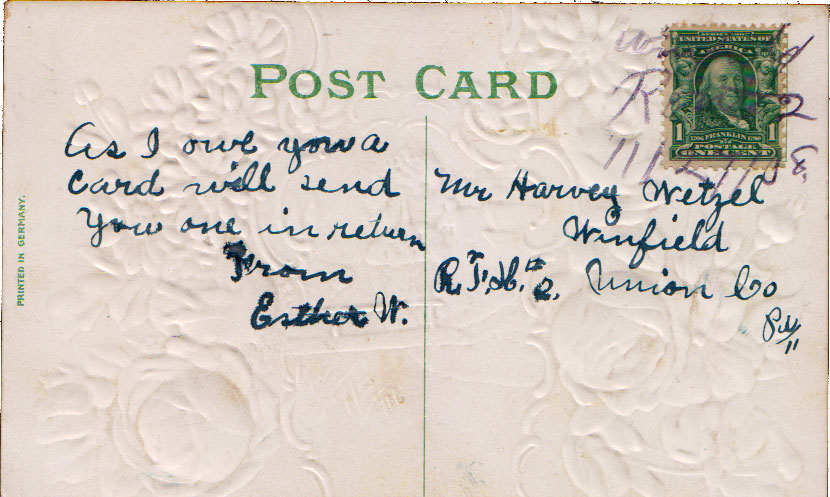 POST CARD
PRINTED IN GERMANY.
As I owe you a
Card will send
You one in return
From
Esther W.
Mr Harvey Wetzel
Winfield
Union Co
SERIES 1902
UNITED STATES OF
AMERICA
1 1706 FRANKLIN 1790 1
POSTAGE
ONE CENT